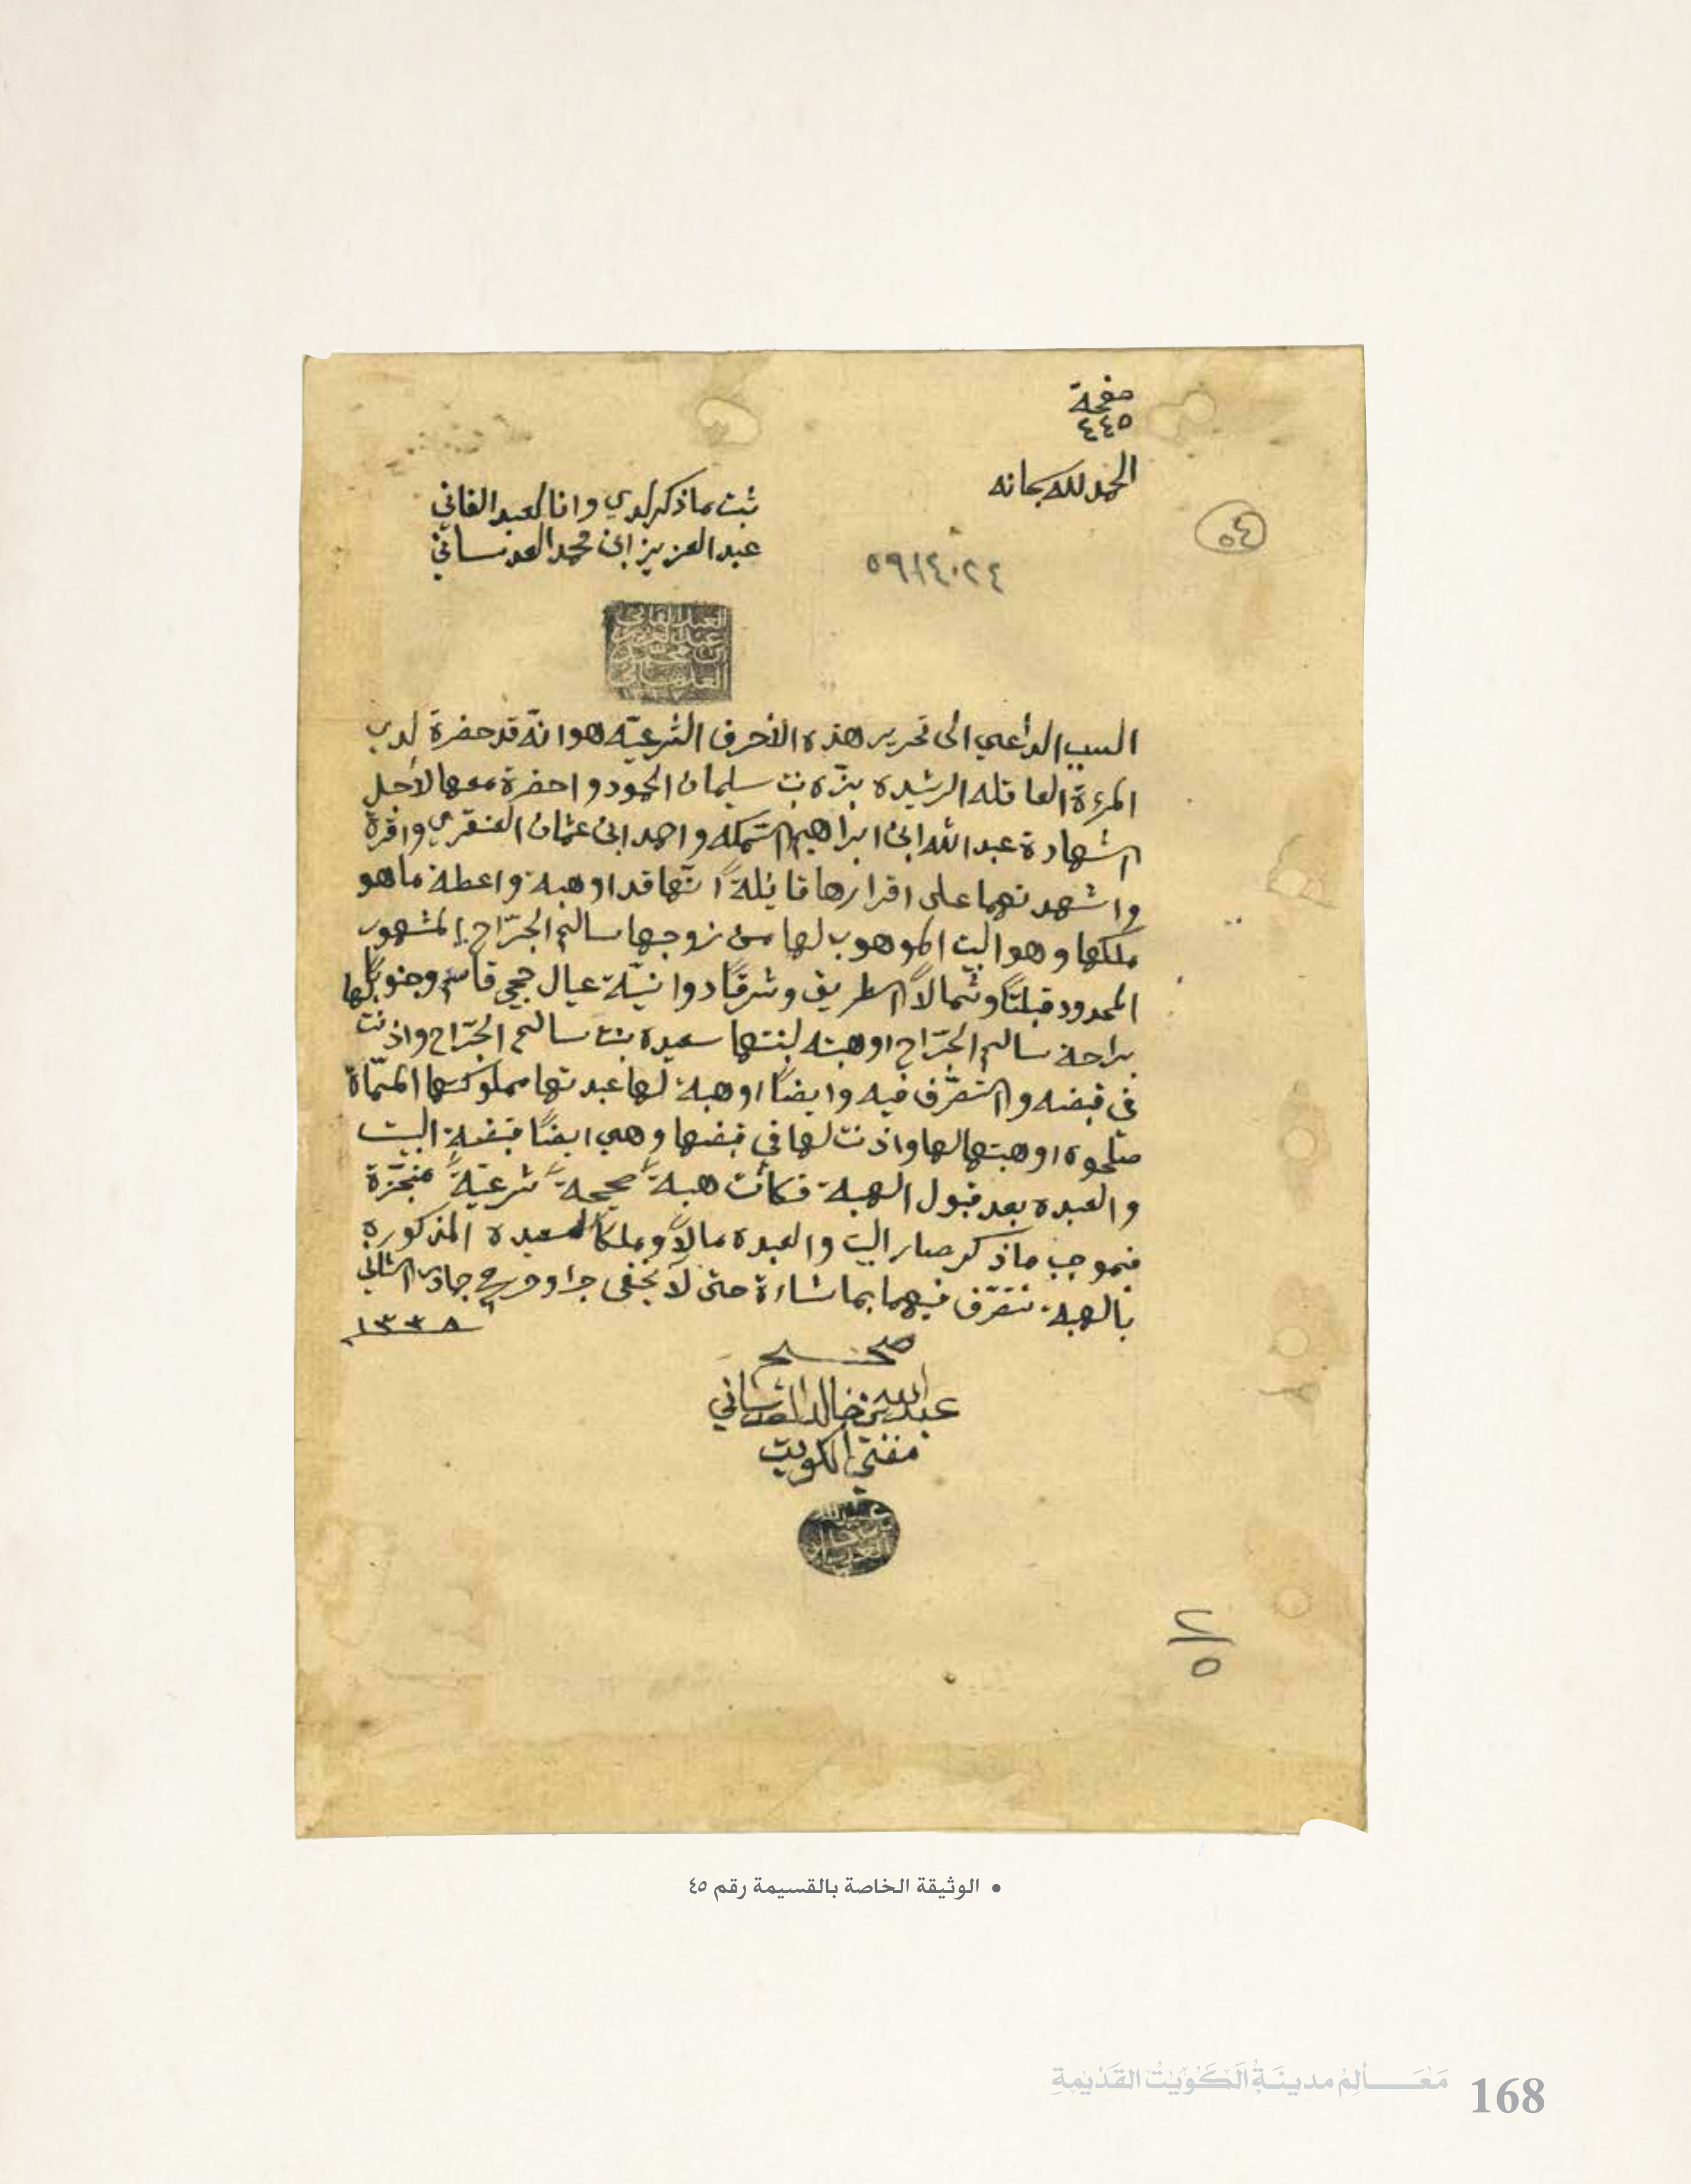 صفحة
٤٤٥
الحمد لله سبحانه
ثبت ماذكر لدي وانا العبد الفاني
عبد العزيز ابن محمد العدساني
٤٥
٥٩/٤٠٢٤
العبد الفاني
عبد العزيز
ابن محمد
العدساني
السبب الداعي الى تحرير هذه الأحرف الشرعيّه هو انّه قد حضرة لدي
المرءة العاقله الرشيده بزّه بنت سليمان الحمود واحضرة معها لأجل
الشهادة عبد الله ابن ابراهيم السّمكه واحمد ابن عثمان العنقري واقرّة
واشهدتهما على اقرارها قايلةً انّها قد اوهبة واعطة ماهو
ملكها وهو البيت الموهوب لها من زوجها سالم الجرّاح المشهور
المحدود قبلتًا وشمالاً الطريق وشرقًا دوانيّة عيال حجي قاسم وجنوبًا
براحة سالم الجرّاح اوهبته لبنتها سعيده بنت سالم الجرّاح واذنت لها
في قبضه والتصرّف فيه وايضًا اوهبة لها عبدتها مملوكتها المسمّاة
صلحوه اوهبتها لها واذنت لها في قبضها وهي ايضًا قبضة البيت
والعبده بعد قبول الهبة فكانت هبةً صحيحةً شرعيّةً منجّزة
فبموجب ماذكر صار البيت والعبده مالاً وملكًا لسعيده المذكوره
بالهبة تتصرّف فيهما بما شاءة حتى لا يخفى جرا وحرر في جمادى الثاني
١٣٣٨
صحيح
عبدالله بن خالد العدساني
مفتي الكويت
٢/٥
• الوثيقة الخاصة بالقسيمة رقم ٤٥
مَعَالِمُ مدينَةِ الكُوَيْتِ القَدْيمةِ 168